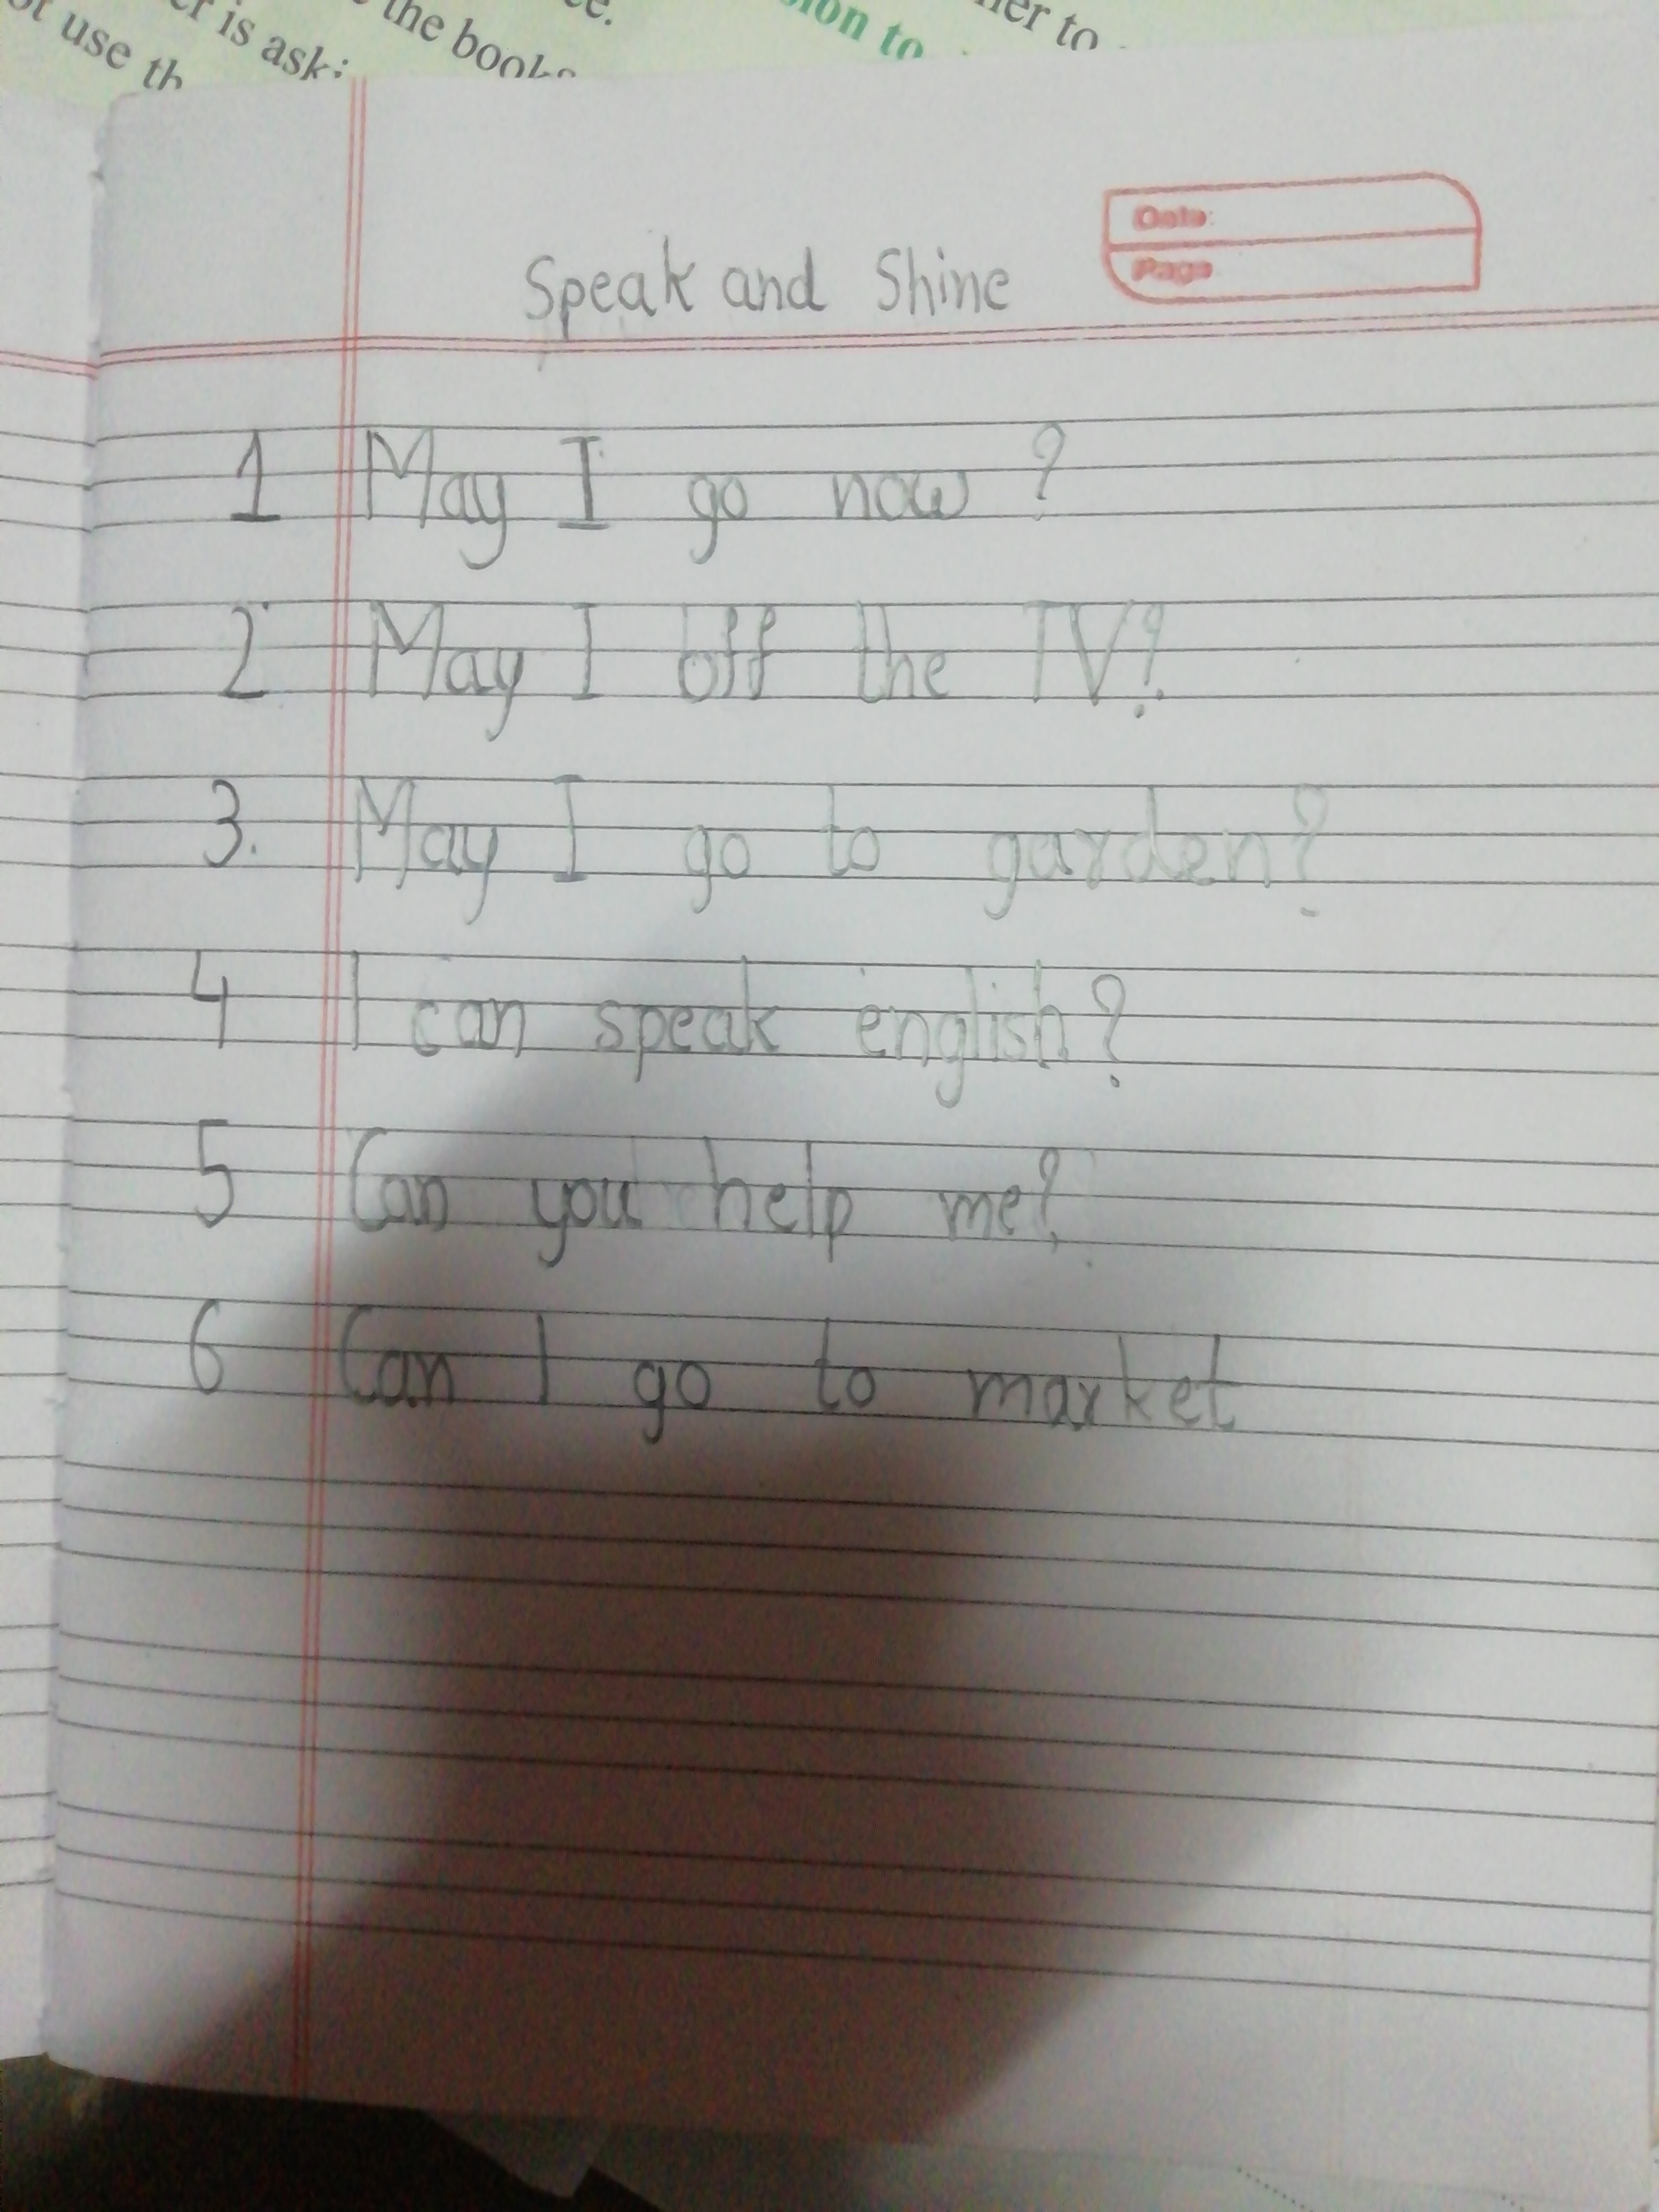 use th
is ask
the books
ion to
to
Speak and Shine
Date:
Page
1 May I go now ?
2 May I off the TV?
3. May I go to garden?
4 I can speak english?
5 Can you help me?
6 Can I go to market